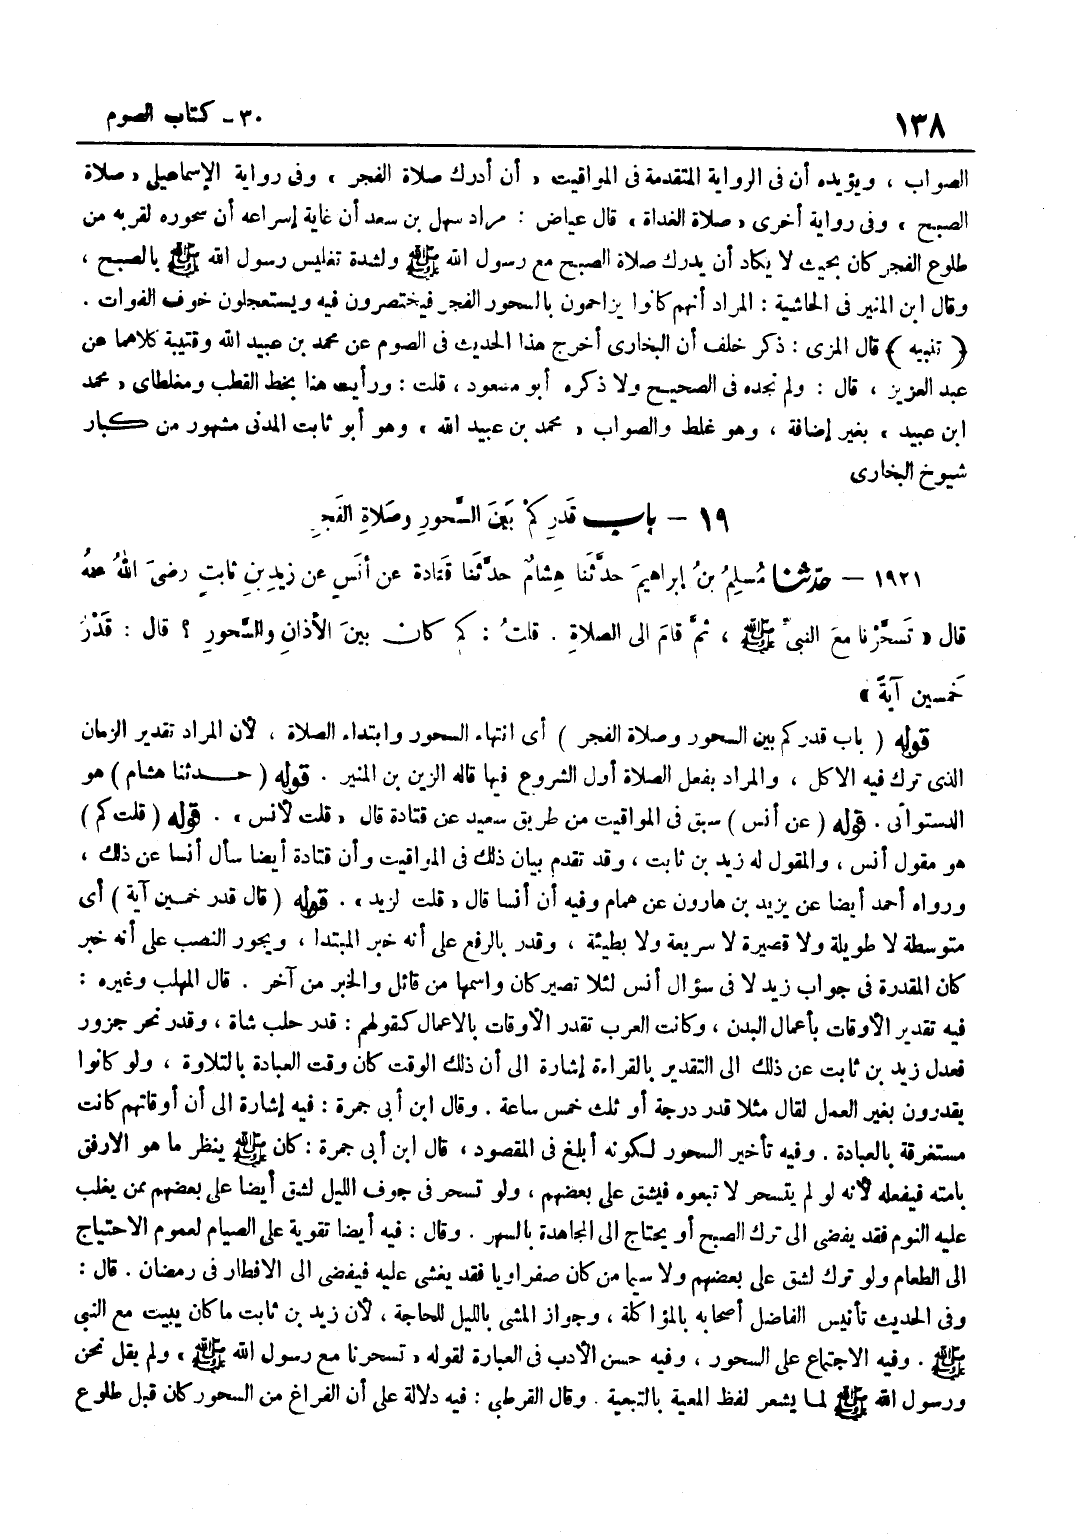 ١٣٨ ٣٠- كتاب الصوم
الصواب ، ويؤيده أن فى الرواية المتقدمة فى المواقيت « أن أدرك صلاة الفجر » وفى رواية الإسماعيلى « صلاة
الصبح » وفى رواية أخرى « صلاة الغداة » قال عياض : مراد سهل بن سعد أن غاية إسراعه أن سحوره لقربه من
طلوع الفجر كان بحيث لا يكاد أن يدرك صلاة الصبح مع رسول الله ﷺ ولشدة تغليس رسول الله ﷺ بالصبح ،
وقال ابن المنير فى الحاشية : المراد أنهم كانوا يزاحمون بالسحور الفجر فيختصرون فيه ويستعجلون خوف الفوات .
( تنبيه ) قال المزى : ذكر خلف أن البخارى أخرج هذا الحديث فى الصوم عن محمد بن عبيد الله وقتيبة كلاهما عن
عبد العزيز ، قال : ولم نجده فى الصحيح ولا ذكره أبو مسعود ، قلت : ورأيت هنا بخط القطب ومغلطاى « محمد
ابن عبيد » بغير إضافة ، وهو غلط والصواب « محمد بن عبيد الله » وهو أبو ثابت المدنى مشهور من كبار
شيوخ البخارى
١٩ - باب قَدرِ كمْ بَينَ السَّحورِ وصَلاةِ الفَجرِ
١٩٢١ - حدّثنا مُسلِمُ بنُ إبراهيمَ حدَّثَنا هِشامٌ حدَّثَنا قَتادة عن أنَسٍ عن زيدِ بنِ ثابتٍ رضىَ اللهُ عنهُ
قال « تَسحَّرْنا معَ النبىِّ ﷺ ، ثمَّ قامَ الى الصلاةِ . قلتُ : كم كان بينَ الأذانِ والسَّحورِ ؟ قال : قَدْرُ
خَمسين آيةً »
قوله ( باب قدركم بين السحور وصلاة الفجر ) أى انتهاء السحور وابتداء الصلاة ، لأن المراد تقدير الزمان
الذى ترك فيه الاكل ، والمراد بفعل الصلاة أول الشروع فيها قاله الزين بن المنير . قوله ( حدثنا هشام ) هو
الدستوائى . قوله ( عن أنس ) سبق فى المواقيت من طريق سعيد عن قتادة قال « قلت لأنس » . قوله ( قلت كم )
هو مقول أنس ، والمقول له زيد بن ثابت ، وقد تقدم بيان ذلك فى المواقيت وأن قتادة أيضا سأل أنسا عن ذلك ،
ورواه أحمد أيضا عن يزيد بن هارون عن همام وفيه أن أنسا قال « قلت لزيد » . قوله ( قال قدر خمسين آية ) أى
متوسطة لا طويلة ولا قصيرة لا سريعة ولا بطيئة ، وقدر بالرفع على أنه خبر المبتدا ، ويجوز النصب على أنه خبر
كان المقدرة فى جواب زيد لا فى سؤال أنس لئلا تصير كان واسمها من قائل والخبر من آخر . قال المهلب وغيره :
فيه تقدير الأوقات بأعمال البدن ، وكانت العرب تقدر الأوقات بالاعمال كقولهم : قدر حلب شاة ، وقدر نحر جزور
فعدل زيد بن ثابت عن ذلك الى التقدير بالقراءة إشارة الى أن ذلك الوقت كان وقت العبادة بالتلاوة ، ولو كانوا
يقدرون بغير العمل لقال مثلا قدر درجة أو ثلث خمس ساعة . وقال ابن أبى جمرة : فيه إشارة الى أن أوقاتهم كانت
مستغرقة بالعبادة . وفيه تأخير السحور لكونه أبلغ فى المقصود ، قال ابن أبى جمرة : كان ﷺ ينظر ما هو الارفق
بامته فيفعله لأنه لو لم يتسحر لا تبعوه فيشق على بعضهم ، ولو تسحر فى جوف الليل لشق أيضا على بعضهم ممن يغلب
عليه النوم فقد يفضى الى ترك الصبح أو يحتاج الى المجاهدة بالسهر . وقال : فيه أيضا تقوية على الصيام لعموم الاحتياج
الى الطعام ولو ترك لشق على بعضهم ولا سيما من كان صفراويا فقد يغشى عليه فيفضى الى الافطار فى رمضان . قال :
وفى الحديث تأنيس الفاضل أصحابه بالمؤاكلة ، وجواز المشى بالليل للحاجة ، لأن زيد بن ثابت ما كان يبيت مع النبى
ﷺ . وفيه الاجتماع على السحور ، وفيه حسن الأدب فى العبارة لقوله « تسحرنا مع رسول الله ﷺ » ولم يقل نحن
ورسول الله ﷺ لما يشعر لفظ المعية بالتبعية . وقال القرطبى : فيه دلالة على أن الفراغ من السحور كان قبل طلوع